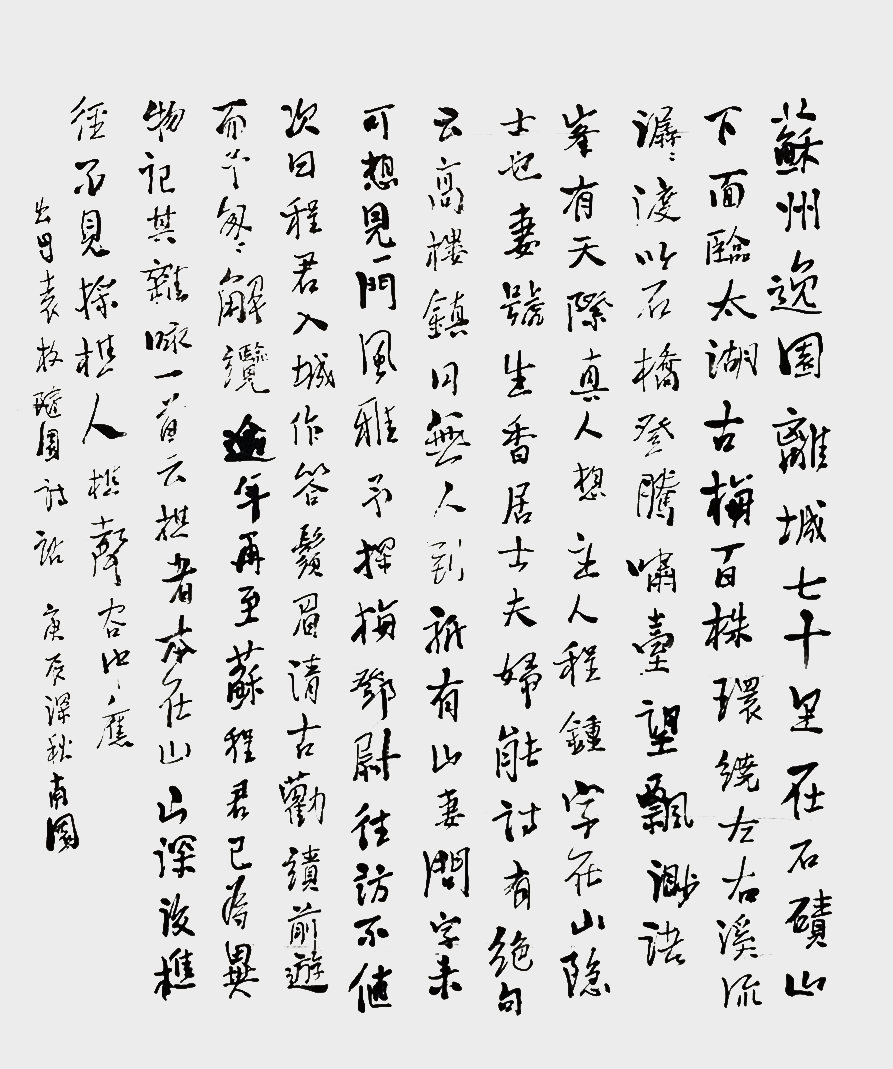 蘇州逸園離城七十里在石磧山
下面臨太湖古梅百株環繞左右溪流
潺潺渡以石橋登騰嘯臺望飄渺諸
峯有天際真人想主人程鍾字在山隐
士也妻號生香居士夫婦能詩有絶句
云高樓鎮日無人到祇有山妻問字来
可想見一門風雅予探梅鄧尉往訪不值
次日程君入城作答鬚眉清古勸續前遊
而予匆匆解纜逾年再至蘇程君已為異
物記其雜咏一首云樵者本在山山深没樵
徑不見採樵人樵聲谷中應
出自袁枚隨園詩話 庚辰深秋南園